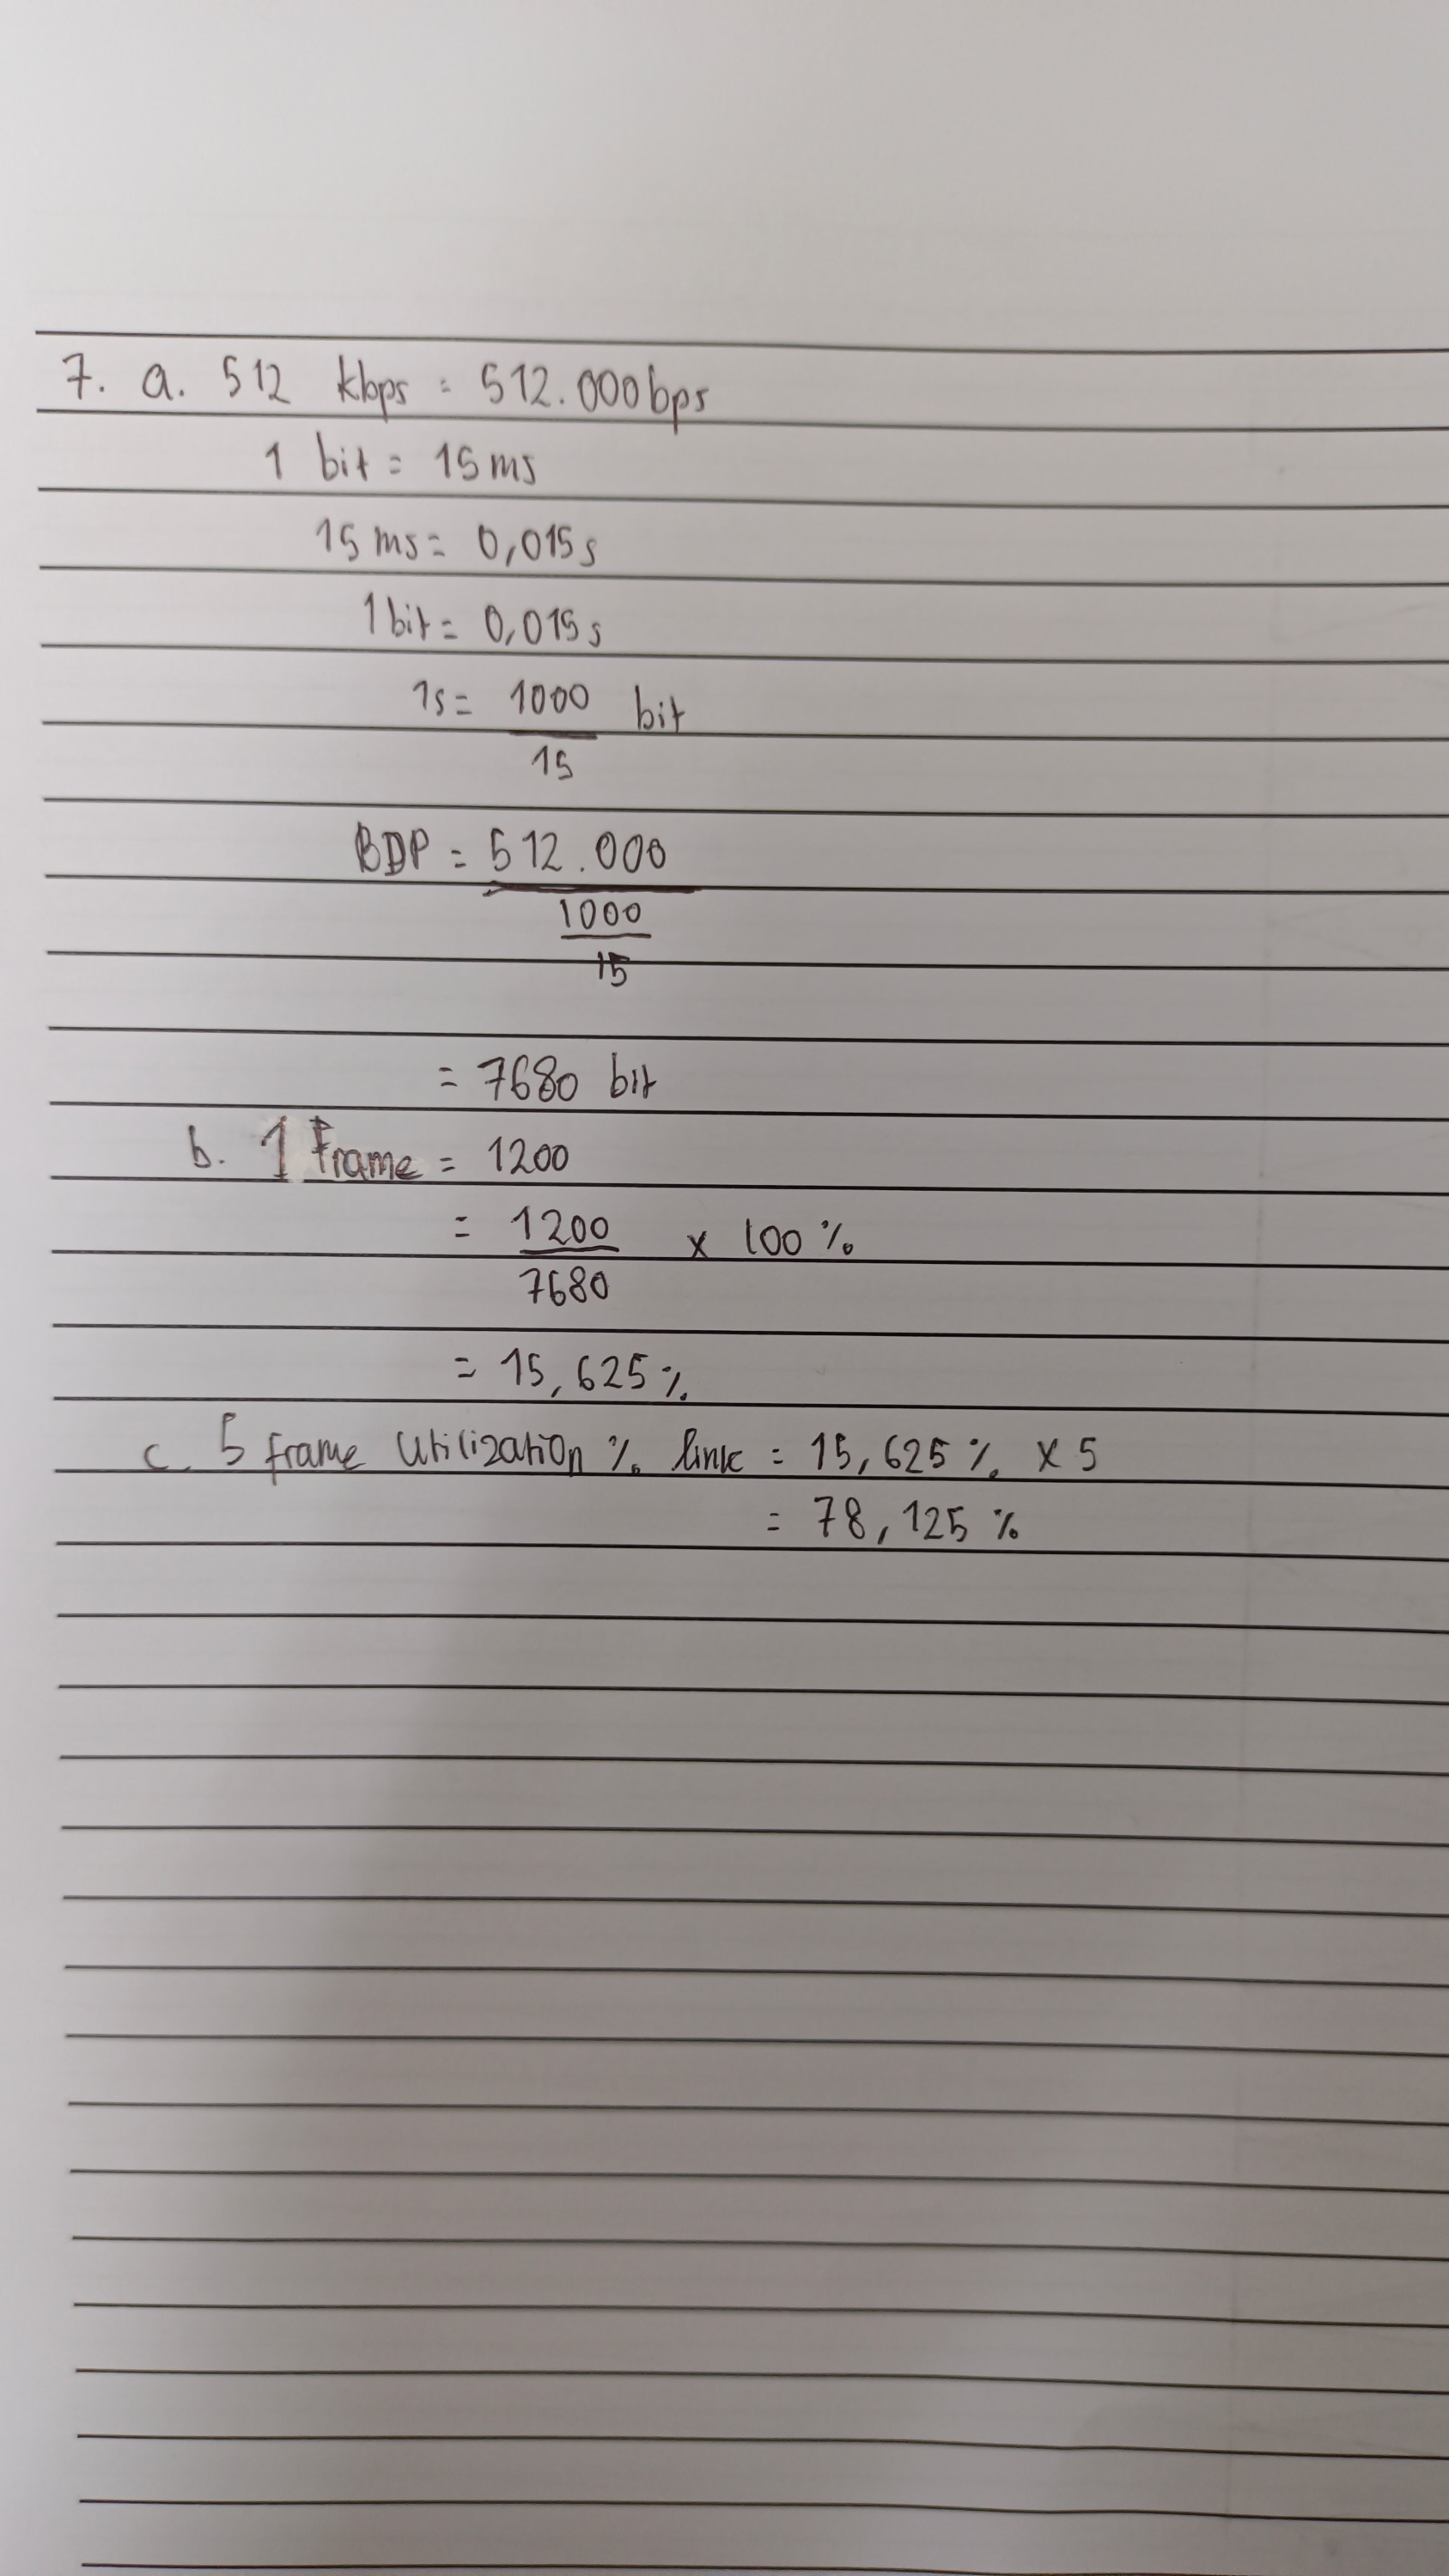 7. a. 512 kbps = 512.000 bps
1 bit = 15 ms
15 ms = 0,015 s
1 bit = 0,015 s
1s = 1000 bit
15
BDP = 512.000
1000
15
= 7680 bit
b. 1 Frame = 1200
= 1200 x 100 %
7680
= 15,625 %
c. 5 frame Utilization % link = 15,625 % x 5
= 78,125 %